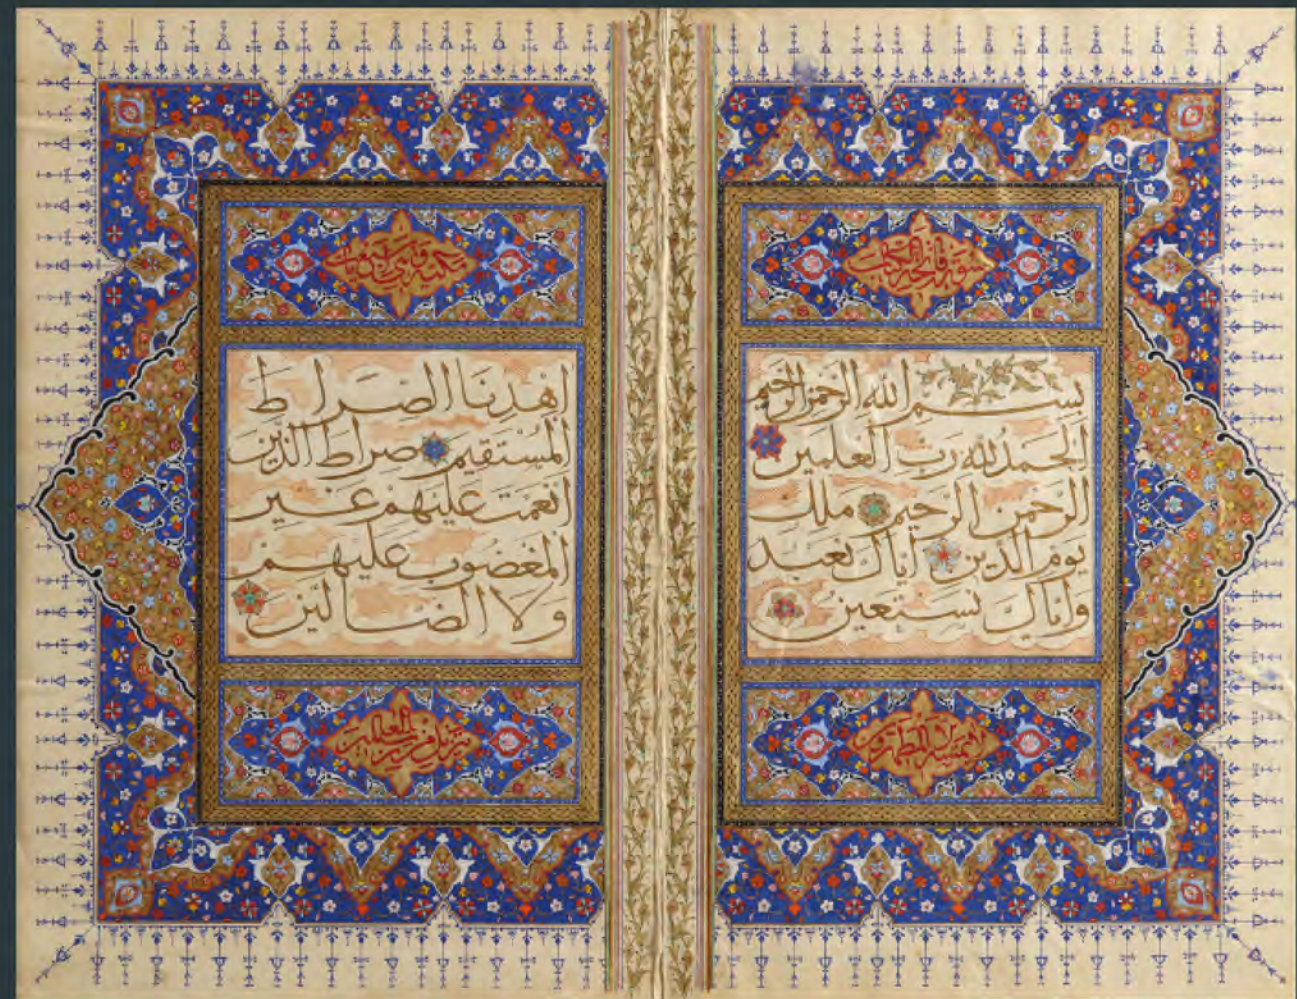 سورة فاتحة الكتاب
بسم الله الرحمن الرحيم
الحمد لله رب العلمين
الرحمن الرحيم ملك
يوم الدين اياك نعبد
واياك نستعين
لا يمسه الا المطهرون
مكية وهي سبع ايات
اهدنا الصراط
المستقيم صراط الذين
انعمت عليهم غير
المغضوب عليهم
ولا الضالين
تنزيل من رب العلمين